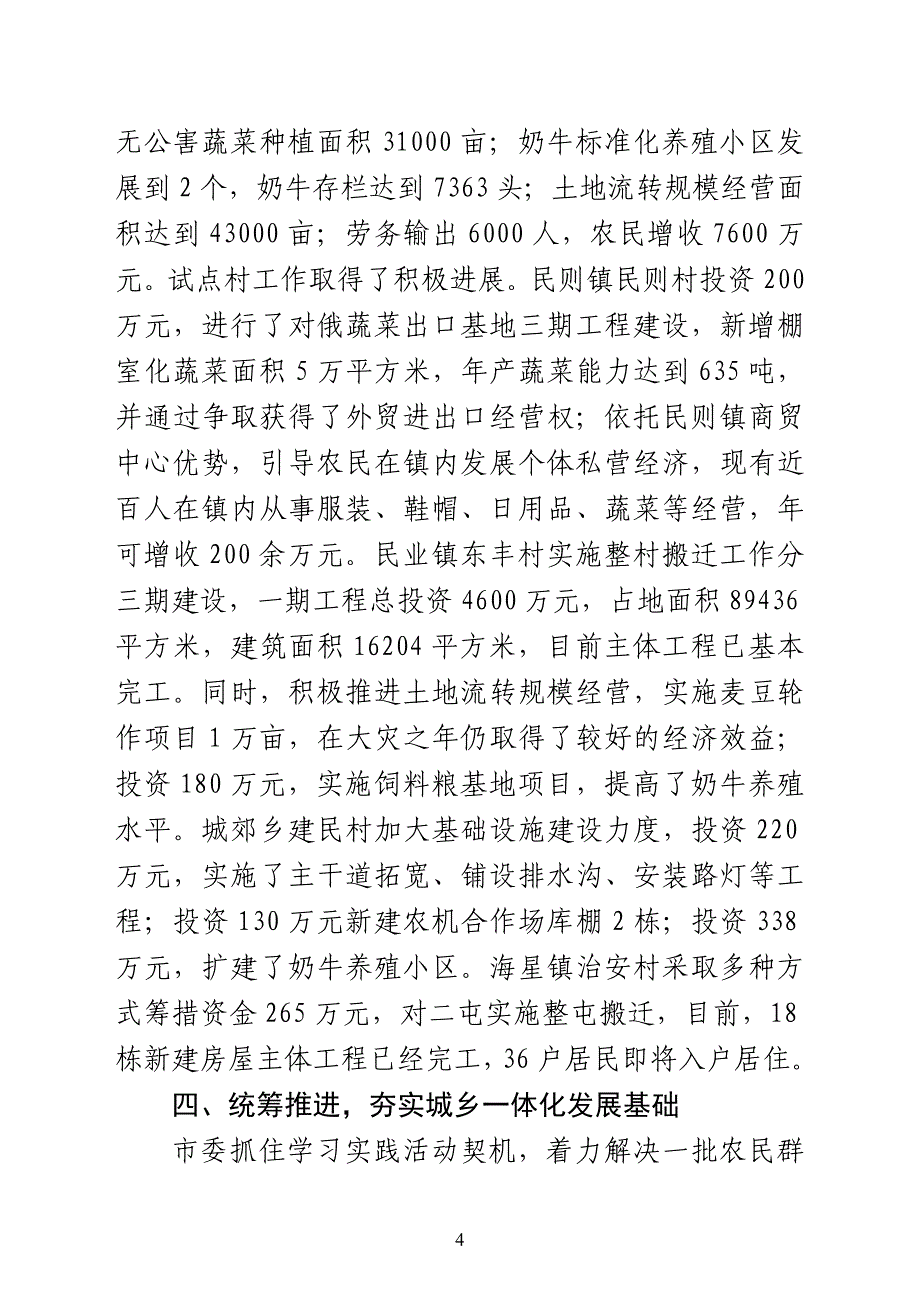 无公害蔬菜种植面积 31000 亩；奶牛标准化养殖小区发
展到 2 个，奶牛存栏达到 7363 头；土地流转规模经营面
积达到 43000 亩；劳务输出 6000 人，农民增收 7600 万
元。试点村工作取得了积极进展。民则镇民则村投资 200
万元，进行了对俄蔬菜出口基地三期工程建设，新增棚
室化蔬菜面积 5 万平方米，年产蔬菜能力达到 635 吨，
并通过争取获得了外贸进出口经营权；依托民则镇商贸
中心优势，引导农民在镇内发展个体私营经济，现有近
百人在镇内从事服装、鞋帽、日用品、蔬菜等经营，年
可增收 200 余万元。民业镇东丰村实施整村搬迁工作分
三期建设，一期工程总投资 4600 万元，占地面积 89436
平方米，建筑面积 16204 平方米，目前主体工程已基本
完工。同时，积极推进土地流转规模经营，实施麦豆轮
作项目 1 万亩，在大灾之年仍取得了较好的经济效益；
投资 180 万元，实施饲料粮基地项目，提高了奶牛养殖
水平。城郊乡建民村加大基础设施建设力度，投资 220
万元，实施了主干道拓宽、铺设排水沟、安装路灯等工
程；投资 130 万元新建农机合作场库棚 2 栋；投资 338
万元，扩建了奶牛养殖小区。海星镇治安村采取多种方
式筹措资金 265 万元，对二屯实施整屯搬迁，目前，18
栋新建房屋主体工程已经完工，36 户居民即将入户居住。
四、统筹推进，夯实城乡一体化发展基础
市委抓住学习实践活动契机，着力解决一批农民群
4